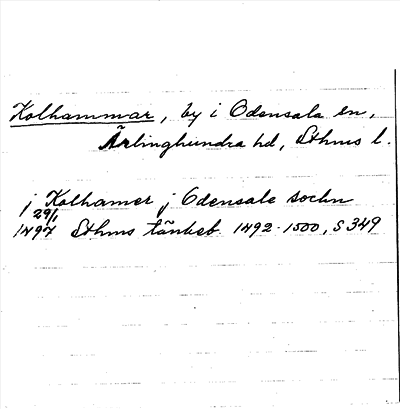 Kolhammar, by i Odensala sn,
Ärlinghundra hd, Sthms l.
j Kolhamer j Odensale sochn
29/1
1497 Sthms tänkeb 1492-1500, S 349